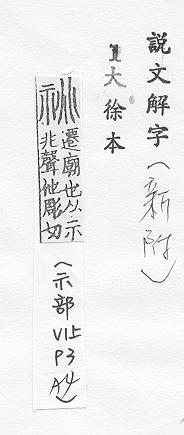 説文解字(新附)
1大徐本
祧 遷廟也从示
兆聲他彫切
(示部
V1上
P3
A4)